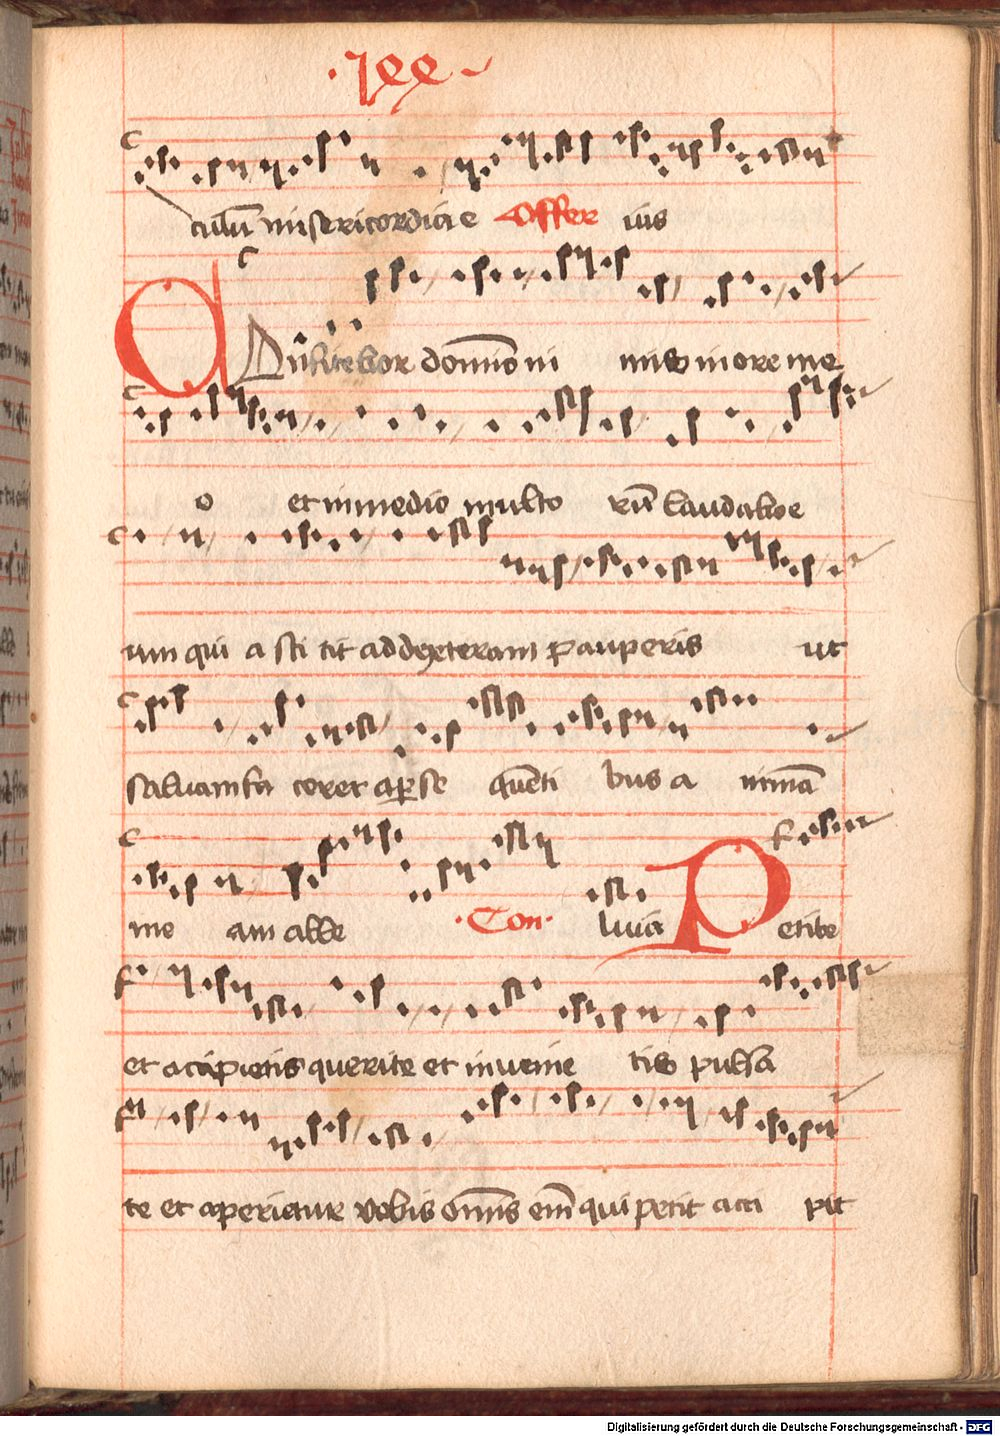 culū misericordia e Offer ius
COnfitebor domino ni mis in ore me
o et in medio multo rū laudabo e
um qui a sti tit ad dexteram pauperis ut
salvam fa ceret a perse quēti bus a nimā
me am alle Con luia Petite
et accipietis querite et invenie tis pulsa
te et aperietur vobis omīs eīm qui petit acci pit
Digitalisierung gefördert durch die Deutsche Forschungsgemeinschaft - DFG